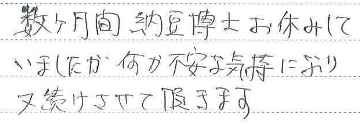 数ヶ月間 納豆博士お休みして
いましたか 何か不安な気持になり
又続けさせて頂きます